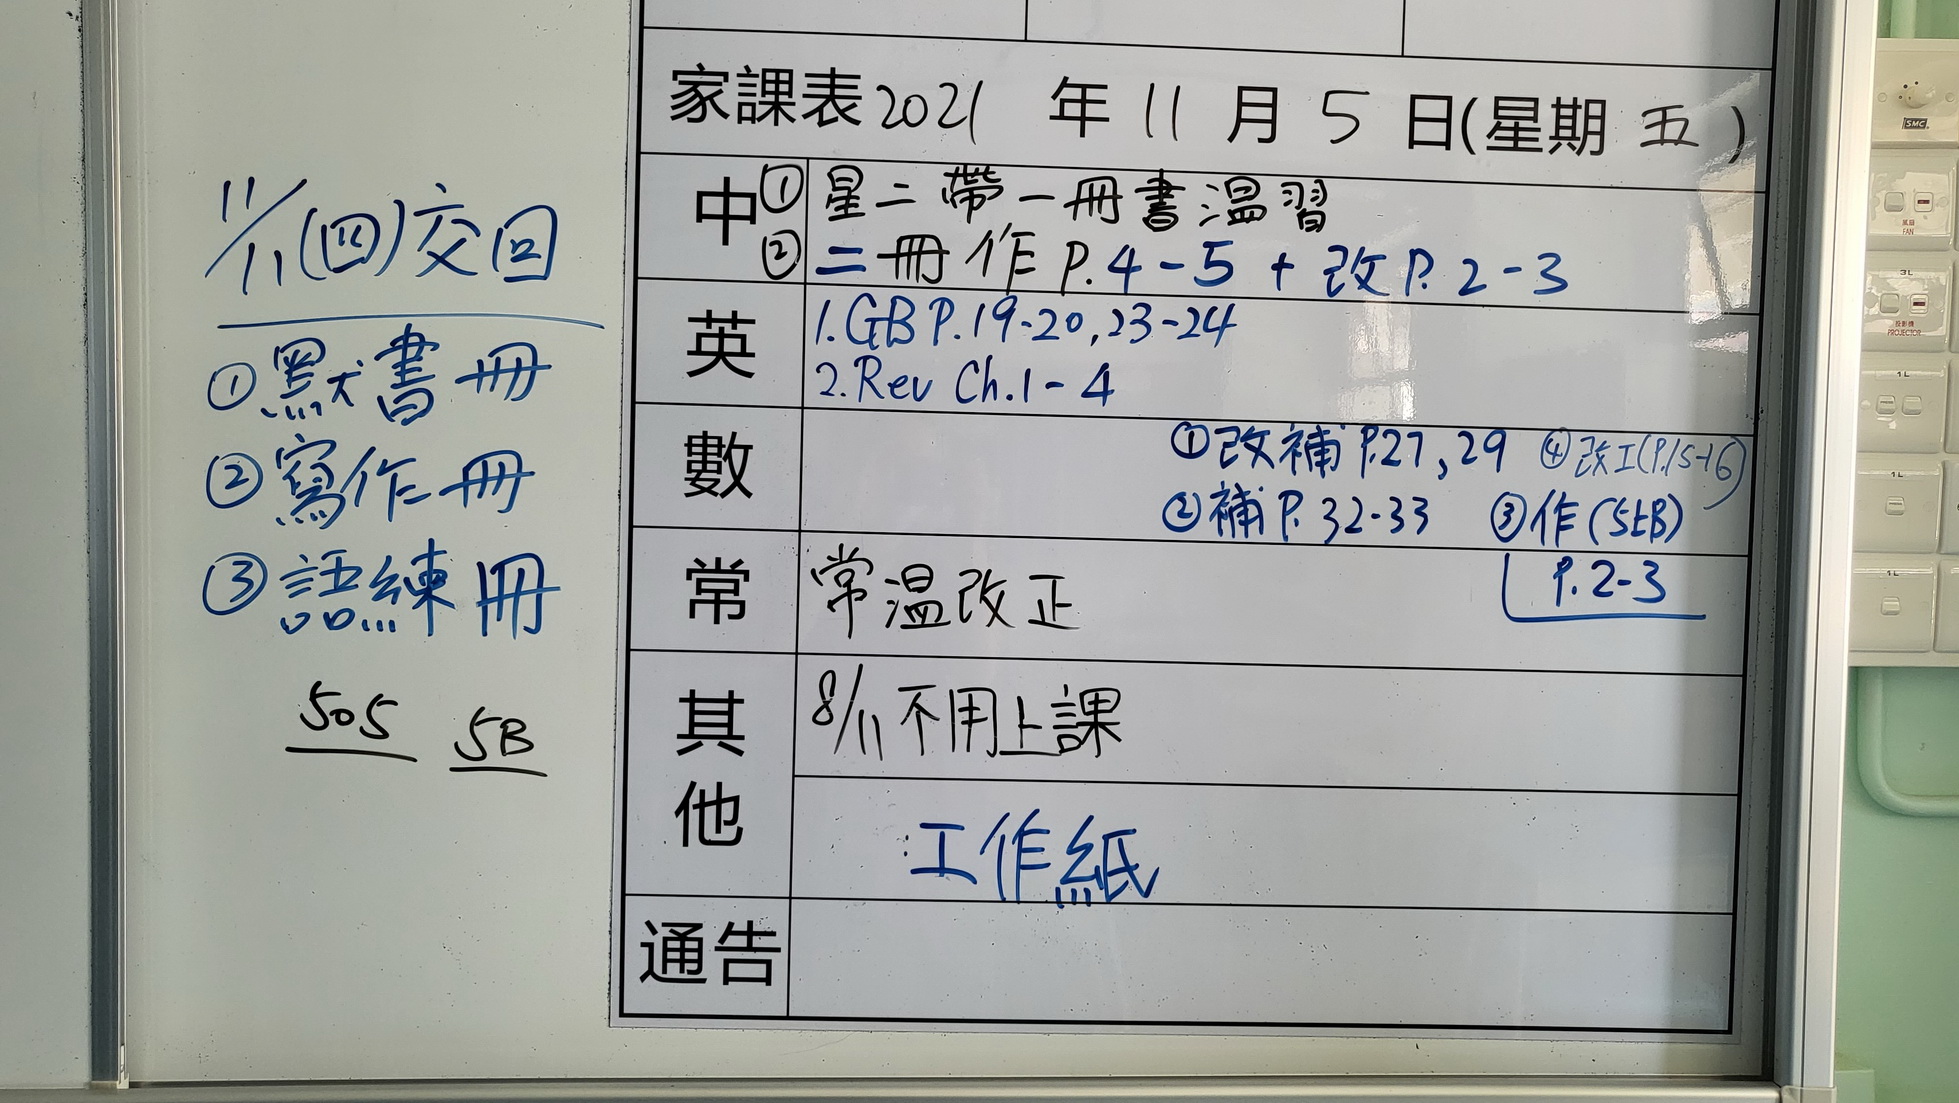 家課表2021 年 11 月 5 日(星期 五)
中 ① 星二帶一冊書溫習
② 二冊作P.4-5 + 改P.2-3
英 1.GB P.19-20,23-24
2.Rev Ch.1-4
數 ①改補P.27,29 ④改工(P.15-16)
②補P.32-33 ③作(5上B)
P.2-3
常 常溫改正
其他 8/11不用上課
工作紙
通告
11/11(四)交回
①默書冊
②寫作冊
③語練冊
505 5B
SMC
風扇
FAN
3L
投影機
PROJECTOR
1L
1L
1L